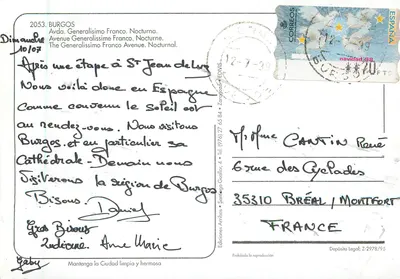 2053. BURGOS
Avda. Generalísimo Franco. Nocturna.
Avenue Generalísime Franco. Nocturne.
The Generalísimo Franco Avenue. Nocturnal.
Dimanche
10/07
Après une étape à St Jean de Luz
Nous voilà donc en Espagne
Comme convenu le soleil est
au rendez-vous. Nous visitons
Burgos et en particulier sa
Cathédrale - Demain nous
Visiterons la région de Burgos
Bisous. Daniel
Gros Bisous
Anne Marie
Gaby
Mantenga la Ciudad limpia y hermosa
CORREOS
ESPAÑA
navidad
PTS
12-7-
BURGOS
M. Mme CANTIN René
6 rue des Cyclades
35310 BRÉAL/MONTFORT
FRANCE
Prohibida la reproducción